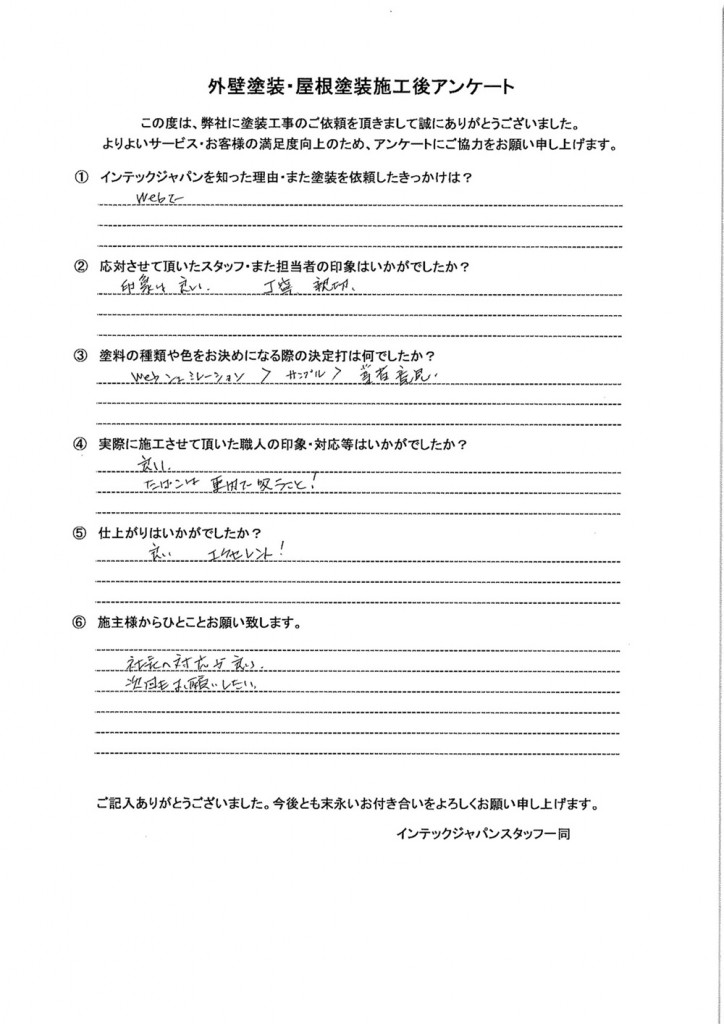 外壁塗装・屋根塗装施工後アンケート
この度は、弊社に塗装工事のご依頼を頂きまして誠にありがとうございました。
よりよいサービス・お客様の満足度向上のため、アンケートにご協力をお願い申し上げます。
① インテックジャパンを知った理由・また塗装を依頼したきっかけは？
Webで
② 応対させて頂いたスタッフ・また担当者の印象はいかがでしたか？
印象は良い. 丁寧 親切.
③ 塗料の種類や色をお決めになる際の決定打は何でしたか？
Webシュミレーション > サンプル > 意見.
④ 実際に施工させて頂いた職人の印象・対応等はいかがでしたか？
良い.
たばこは 車内で吸うこと!
⑤ 仕上がりはいかがでしたか？
良い エクセレント!
⑥ 施主様からひとことお願い致します。
社長の対応が良い.
次回もお願いしたい.
ご記入ありがとうございました。今後とも末永いお付き合いをよろしくお願い申し上げます。
インテックジャパンスタッフ一同